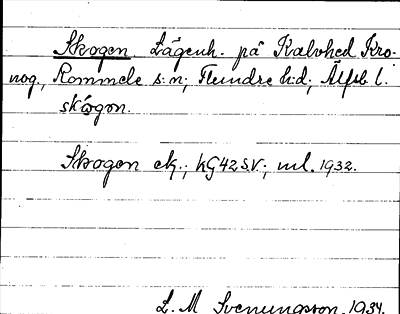 Skogen Lägenh. på Kalvhed Kro-
nog., Rommele s:n; Flundre h:d; Älfsb l.
skógọn.
Skogen ek.; KG42S.V.; ml. 1932.
L. M Svenungsson. 1934.